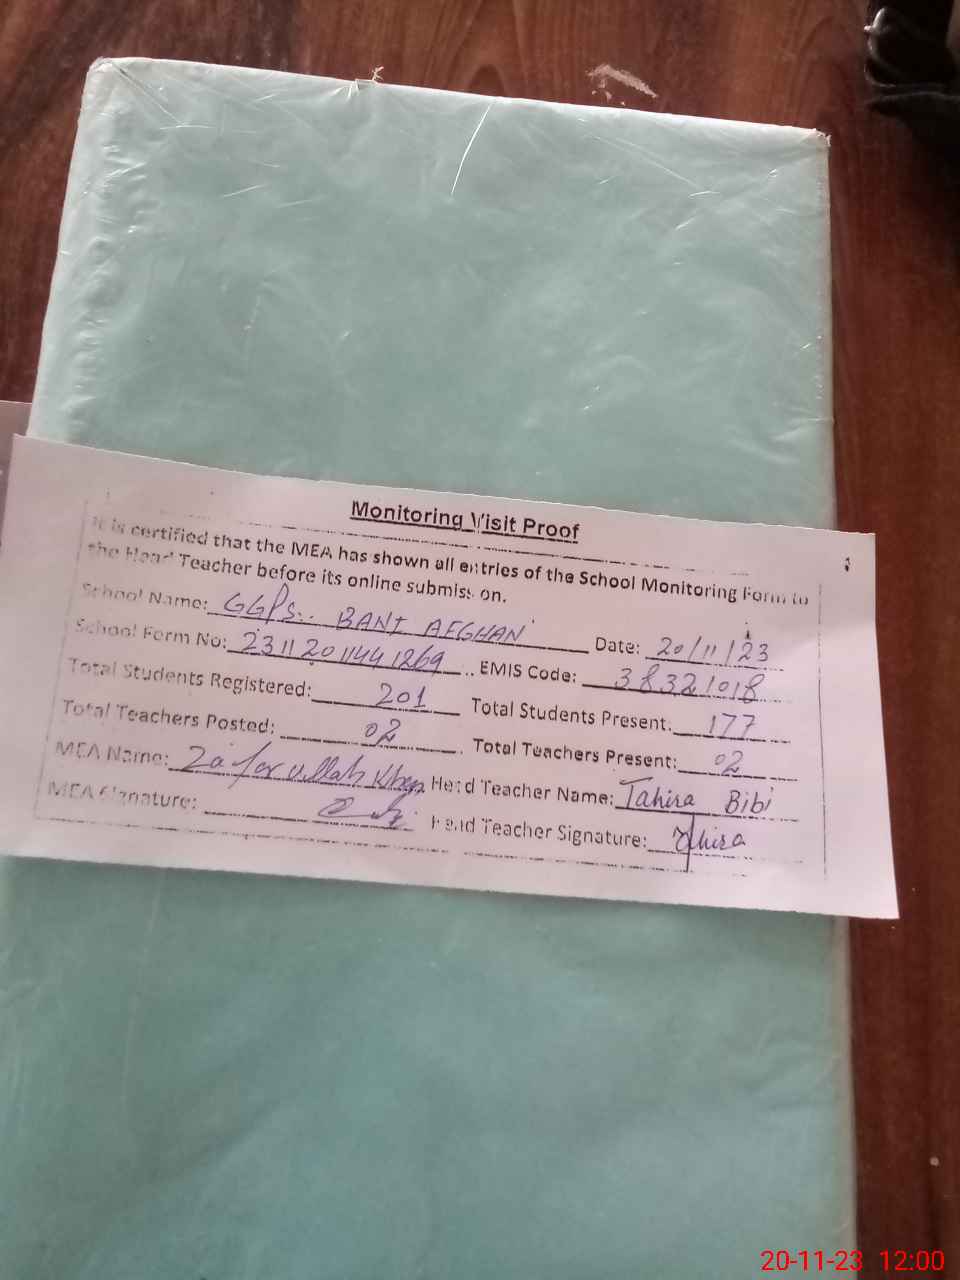 Monitoring Visit Proof
It is certified that the MEA has shown all entries of the School Monitoring Form to
the Head Teacher before its online submission.
School Name: GGPS.. BANI AFGHAN Date: 20/11/23
School Form No: 2311201144 1269 EMIS Code: 38321018
Total Students Registered: 201 Total Students Present. 177
Total Teachers Posted: 02 Total Teachers Present: 02
MEA Name: Zafar Ullah Khan Head Teacher Name: Tahira Bibi
MEA Signature: Head Teacher Signature: Tahira
20-11-23 12:00